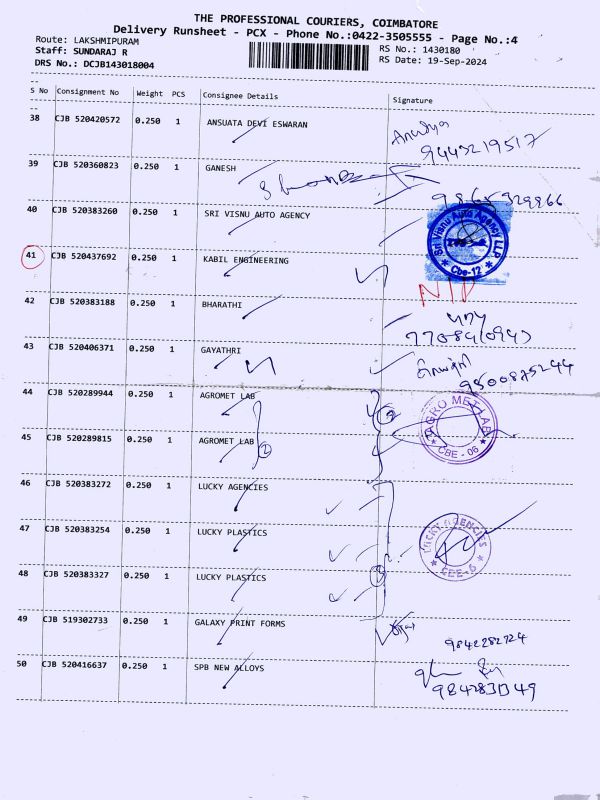 THE PROFESSIONAL COURIERS, COIMBATORE
Delivery Runsheet - PCX - Phone No.:0422-3505555 - Page No.:4
Route: LAKSHMIPURAM
RS No.: 1430180
Staff: SUNDARAJ R
RS Date: 19-Sep-2024
DRS No.: DCJB143018004
S No Consignment No Weight PCS Consignee Details Signature
38 CJB 520420572 0.250 1 ANSUATA DEVI ESWARAN
9443219517
39 CJB 520360823 0.250 1 GANESH
40 CJB 520383260 0.250 1 SRI VISNU AUTO AGENCY
Sri Visnu Auto Agency LLP
Cbe-12
41 CJB 520437692 0.250 1 KABIL ENGINEERING
42 CJB 520383188 0.250 1 BHARATHI
43 CJB 520406371 0.250 1 GAYATHRI
9500875244
44 CJB 520289944 0.250 1 AGROMET LAB
2
AGRO MET LAB
CBE - 06
45 CJB 520289815 0.250 1 AGROMET LAB
2
46 CJB 520383272 0.250 1 LUCKY AGENCIES
47 CJB 520383254 0.250 1 LUCKY PLASTICS
LUCKY AGENCIES
48 CJB 520383327 0.250 1 LUCKY PLASTICS
3
49 CJB 519302733 0.250 1 GALAXY PRINT FORMS
9842282724
50 CJB 520416637 0.250 1 SPB NEW ALLOYS